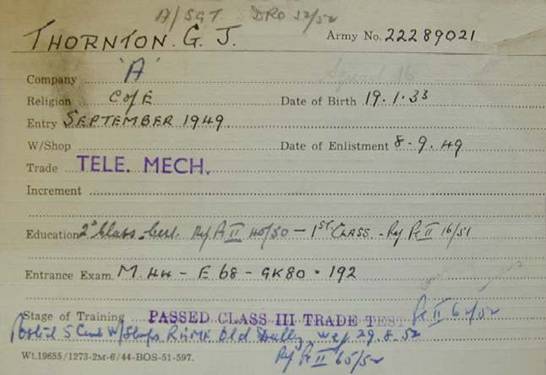 A/SGT DRO 32/52
THORNTON. G. J. Army No. 22289021
Company 'A'
Religion C of E Date of Birth 19.1.33
Entry SEPTEMBER 1949.
W/Shop Date of Enlistment 8.9.49
Trade TELE. MECH.
Increment
Education 2d Class Cert. Ref Pt II 40/50 — 1ST CLASS. Ref Pt II 16/51
Entrance Exam. M 44 - E 68 - GK80 . 192
Stage of Training PASSED CLASS III TRADE TEST Pt II 62/52
Posted 5 Cmd W/Shops REME Old Dalby, wef 29.8.52
Wt.19655/1273-2M-6/44-BOS-51-597. Ref Pt II 65/52